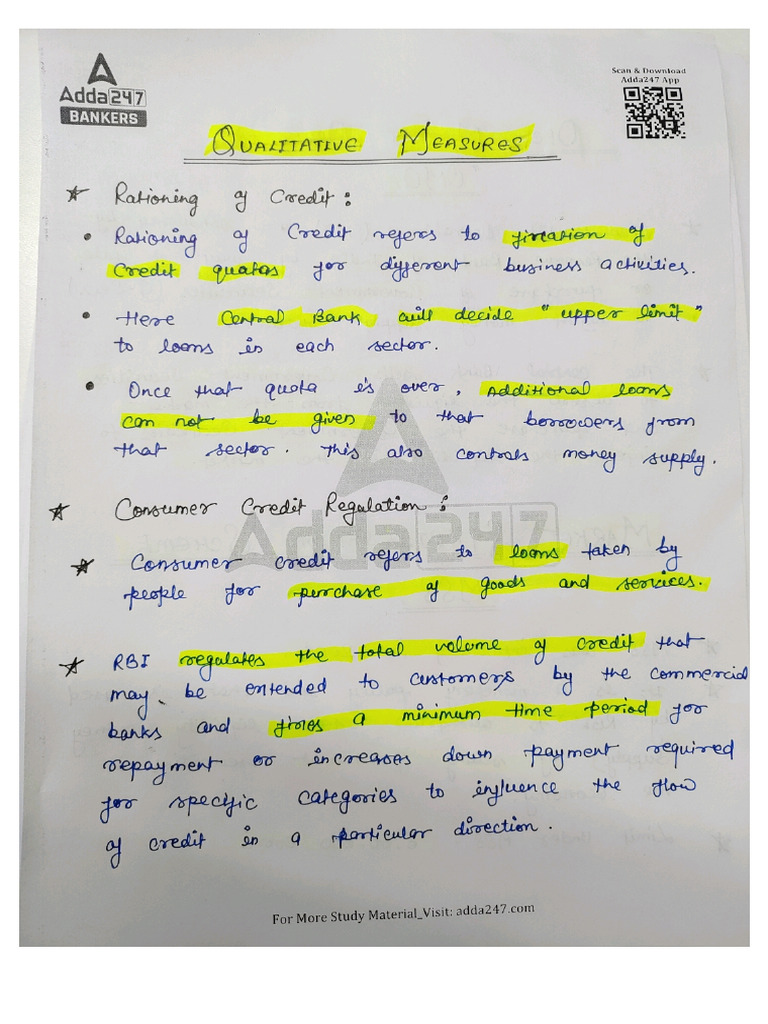 Scan & Download
Adda247 App
Adda247
BANKERS
QUALITATIVE MEASURES
Rationing of Credit :
Rationing of Credit refers to fixation of
Credit quotas for different business activities.
Here Central Bank will decide "upper limit"
to loans in each sector.
Once that quota is over, Additional loans
can not be given to that borrowers from
that sector. This also controls money supply.
Adda247
Consumer Credit Regulation :
Consumer credit refers to loans taken by
people for purchase of goods and services.
RBI regulates the total volume of credit that
may be extended to customers by the commercial
banks and fixes a minimum time period for
repayment or increases down payment required
for specific categories to influence the flow
of credit in a particular direction.
For More Study Material_Visit: adda247.com